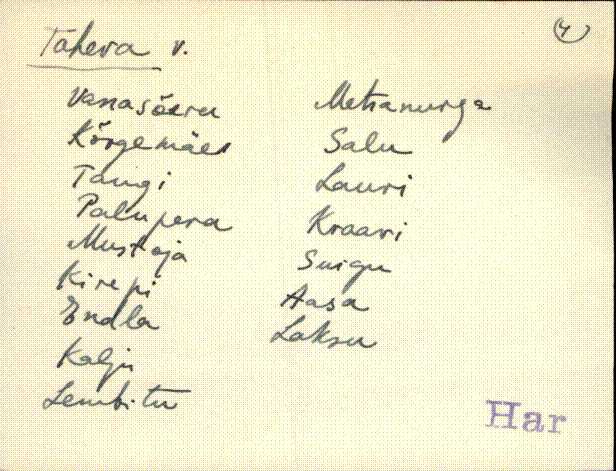 Taheva v.
4
Vanasõeru
Kõrgemäe
Tangi
Palupera
Mustoja
Kirepi
Endla
Kalju
Lembitu
Metsanurga
Salu
Lauri
Kraavi
Suigu
Aasa
Laksu
Har